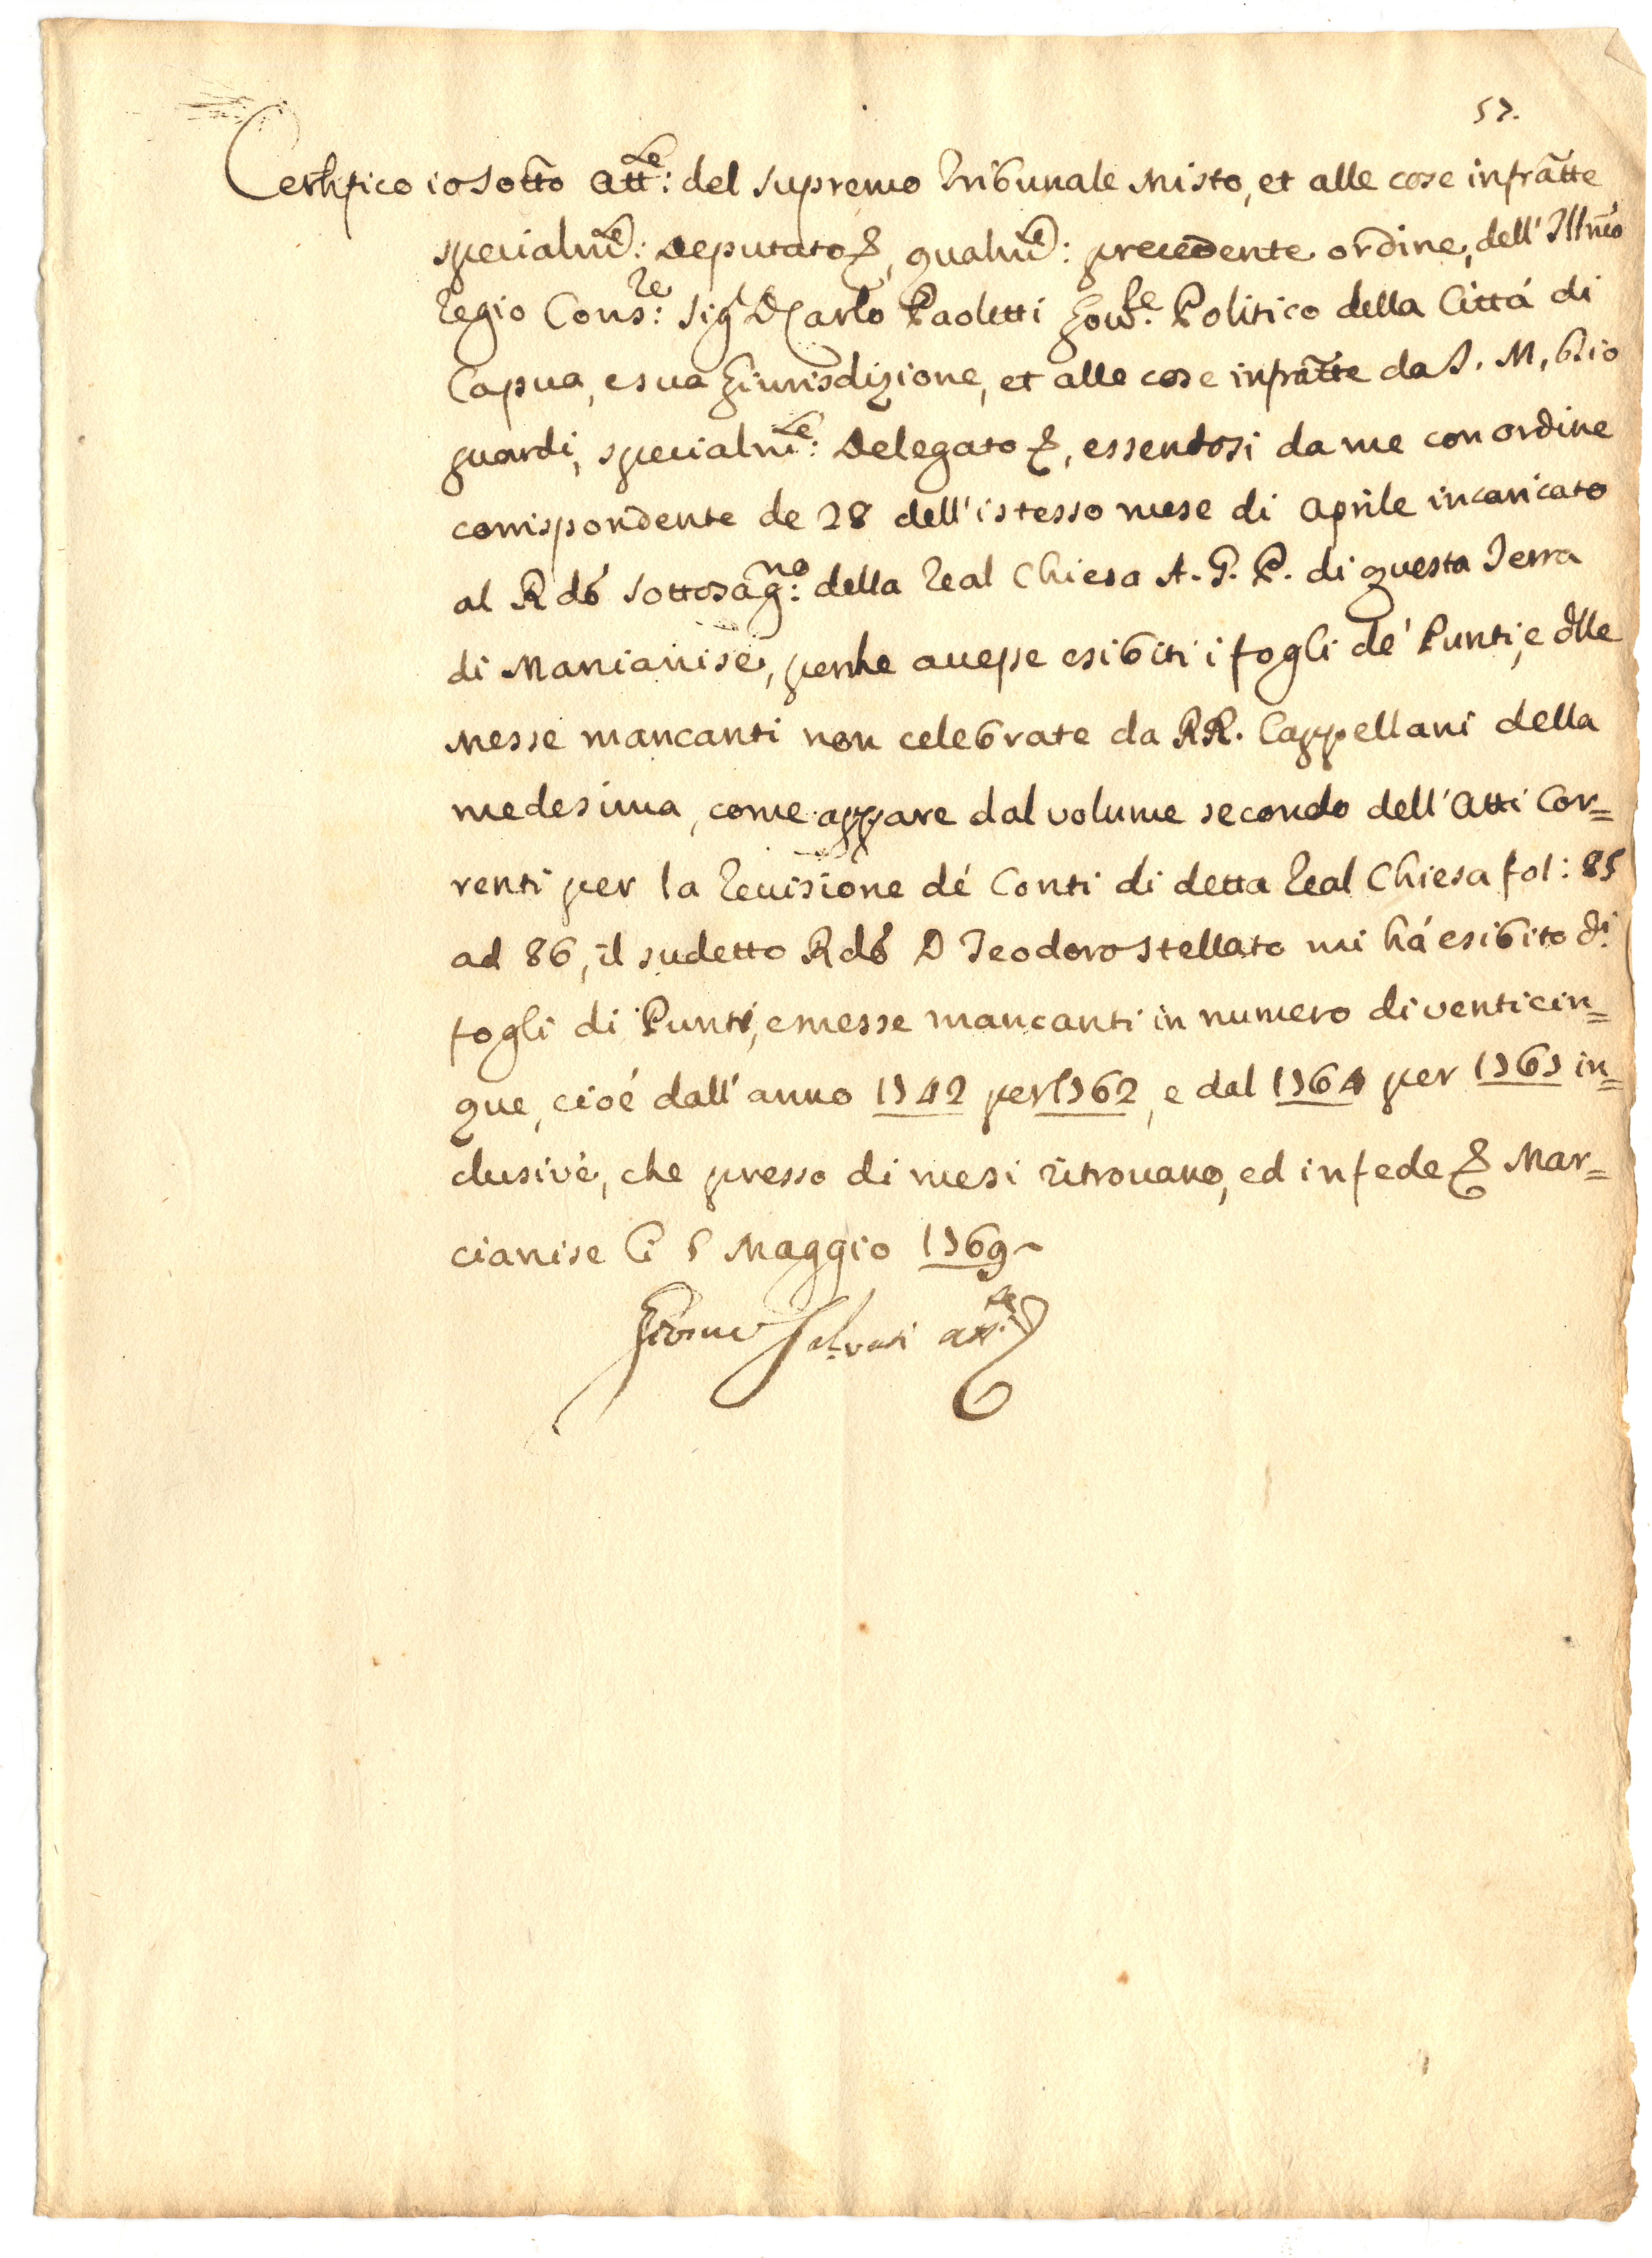 57.
Certifico io sotto Att:le del Supremo Tribunale Misto, et alle cose infratte
specialm:te Deputato &, qualm:te precedente ordine, dell'Illmo
Regio Cons:re Sig.r D Carlo Paoletti Gov:re Politico della Cittá di
Capua, e sua Giurisdizione, et alle cose infratte da S. M., D.io
guardi, specialm:te Delegato &, essendosi da me con ordine
corrispondente de 28 dell'istesso mese di Aprile incaricato
al Rdo Sottosag:no della Real Chiesa A. G. P. di questa Terra
di Marcianise, perche avesse esibiti i fogli de' Punti, e dlle
Messe mancanti non celebrate da RR. Cappellani della
medesima, come appare dal volume secondo dell'Atti Cor=
renti per la Revisione dé Conti di detta Real Chiesa fol: 85
ad 86, il sudetto Rdo D Teodoro Stellato mi há esibito di
fogli di Punti, e messe mancanti in numero di venticin=
que, cioé dall'anno 1742 per 1762, e dal 1764 per 1767 in=
clusivé, che presso di me si ritrovano, ed in fede & Mar=
cianise li 5 Maggio 1769~
Salvati att:le